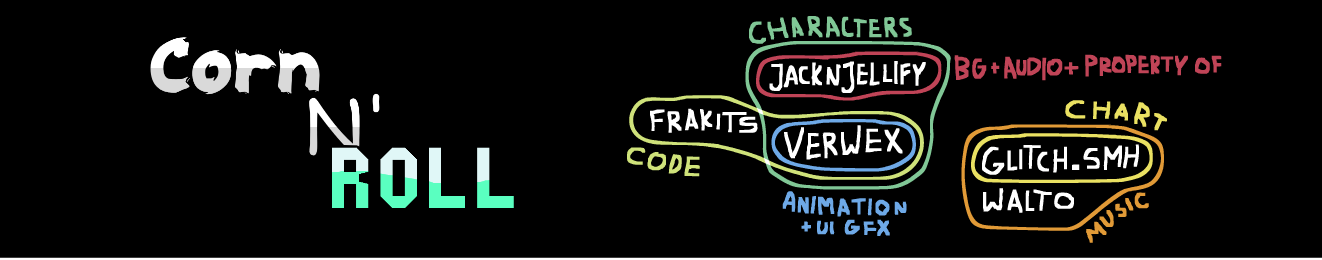 Corn
N'
ROLL
CHARACTERS
JACKNJELLIFY
BG+AUDIO+ PROPERTY OF
FRAKITS
VERWEX
CODE
ANIMATION
+ UI GFX
CHART
GLITCH.SMH
WALTO
MUSIC